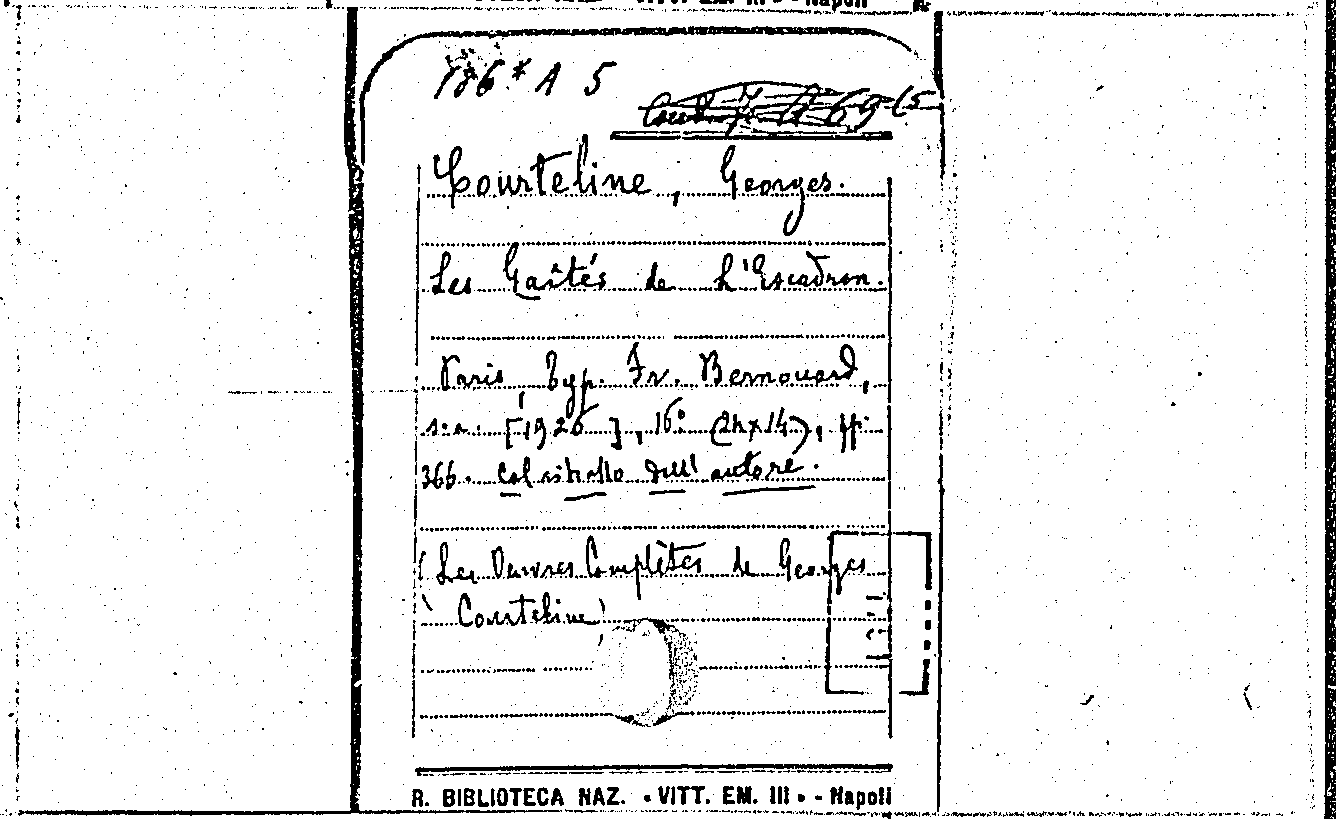 186* A 5
Courteline, Georges.
Les Gaîtés de L'Escadron.
Paris, Typ. Fr. Bernouard,
s.a. [1926], 16° (2h×14), pp.
366. Col ritratto dell' autore.
(Les Oeuvres Complètes de Georges
Courteline)
R. BIBLIOTECA NAZ. • VITT. EM. III • - Napoli